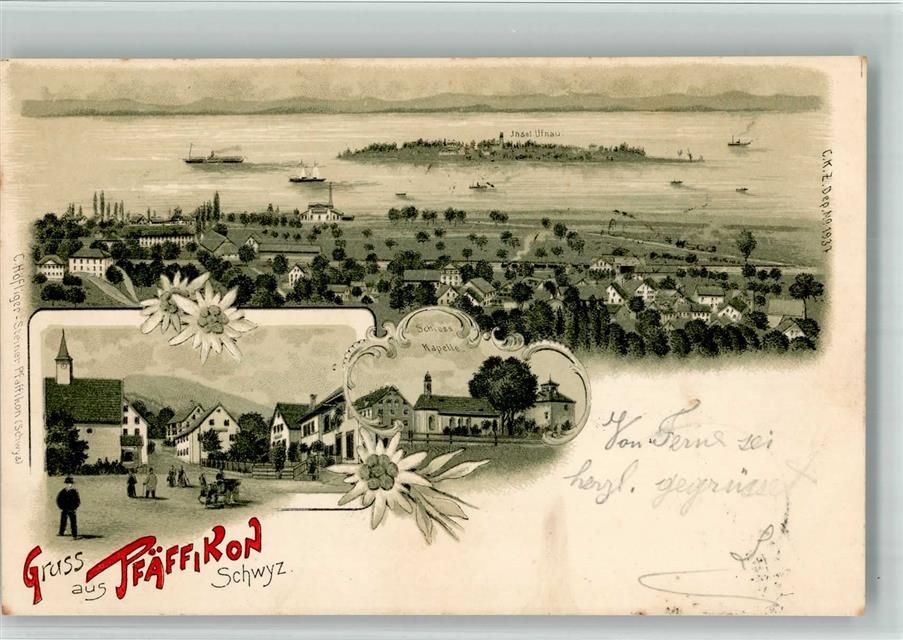 Insel Ufnau.
C.K.Z.Dep.No 1937
C. Höfliger-Steiner Pfäffikon (Schwyz)
Schloss
Kapelle.
Von Ferne sei
herzl. gegrüsst
Gruss
aus PFÄFFIKON
Schwyz.